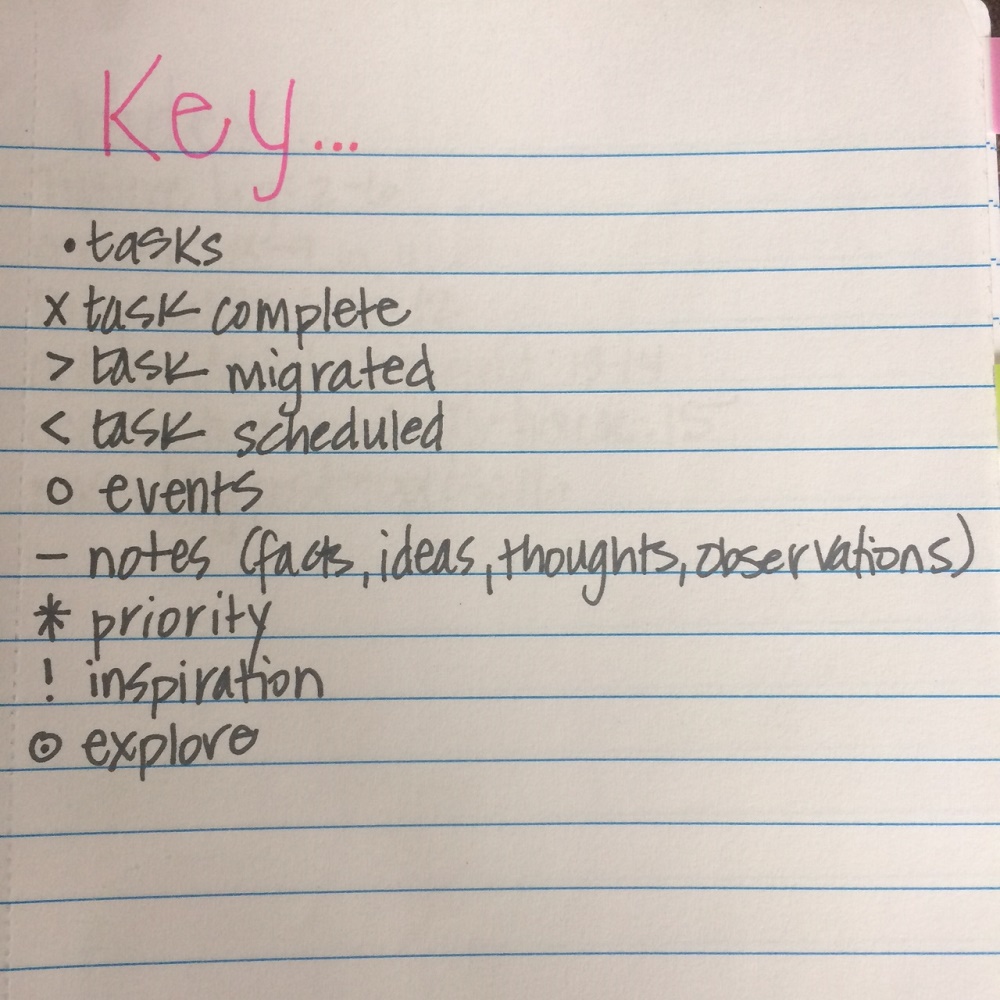 Key...
• tasks
x task complete
> task migrated
< task scheduled
o events
– notes (facts, ideas, thoughts, observations)
* priority
! inspiration
⊙ explore